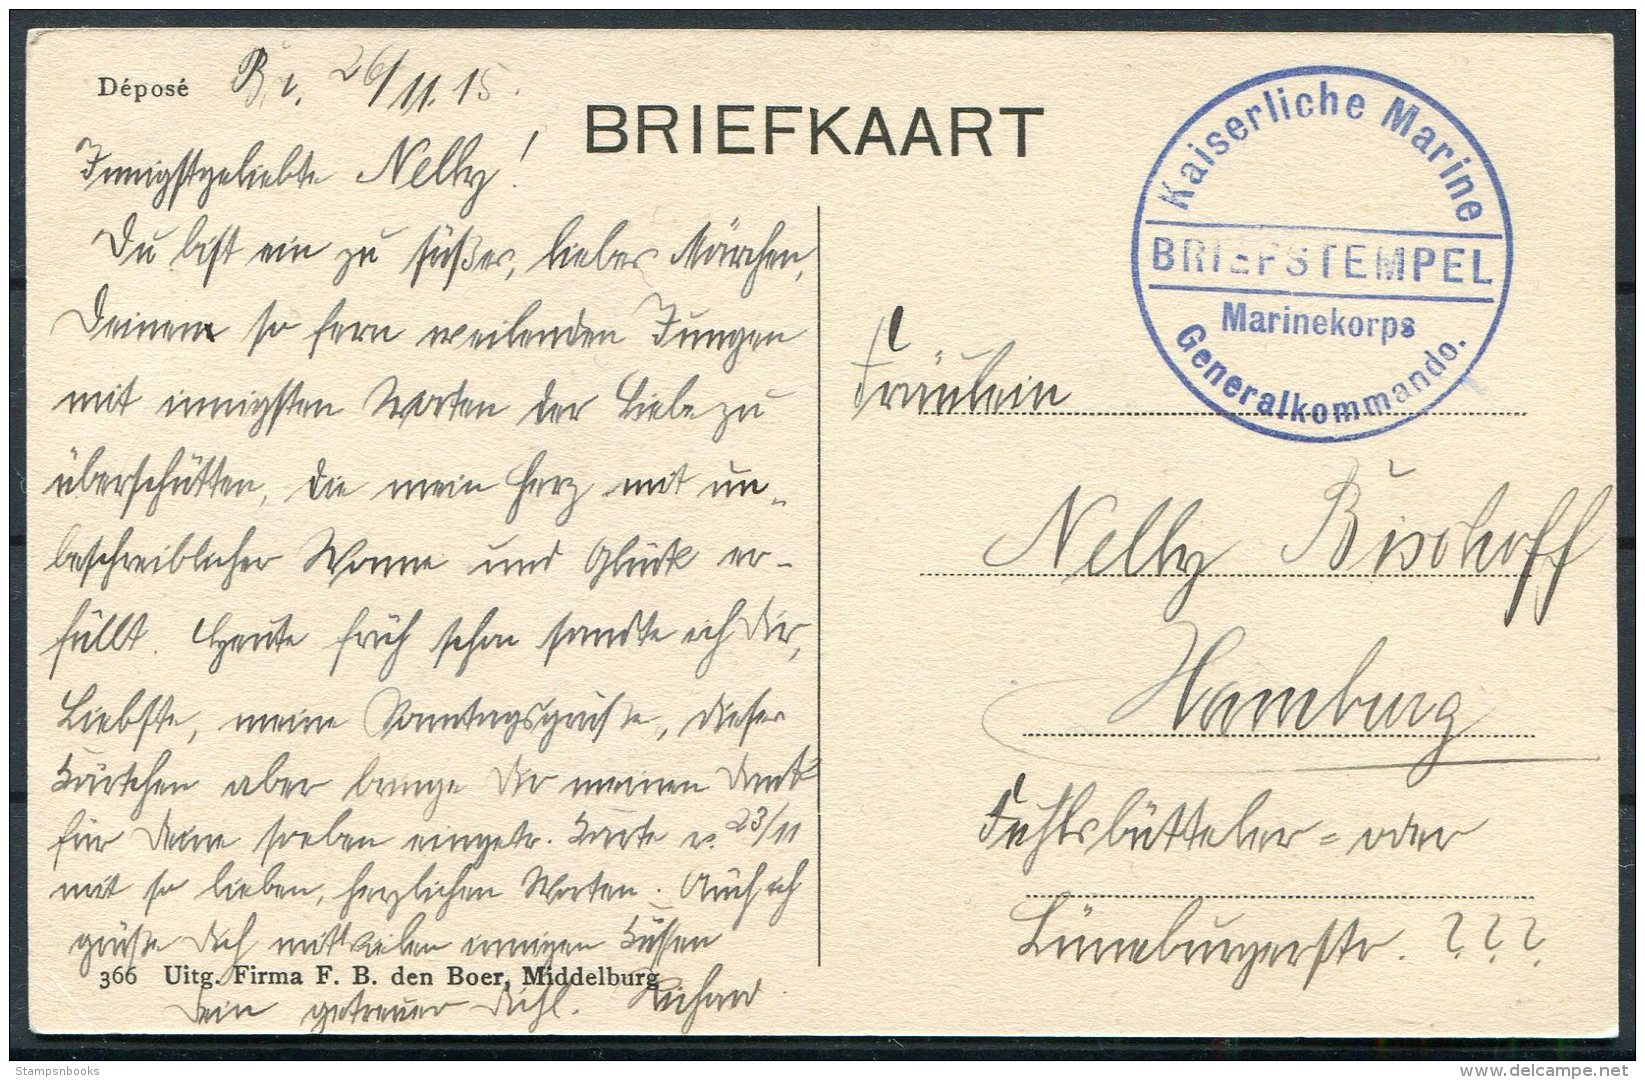 Déposé
26/11.15.
BRIEFKAART
Innigstgeliebte Nelly!
Du bist ein zu süßes, liebes Märchen,
Deinen so fern weilenden Jungen
mit innigsten Worten der Liebe zu
überschütten, die mein Herz mit un-
beschreiblicher Wonne und Glück er-
füllt. Heute früh schon sandte ich Dir,
Liebste, meine Sonntagsgrüße, dieses
Kärtchen aber bringe Dir meinen Dank
für Deine soeben eingetr. Karte v. 23/11
mit so lieben, herzlichen Worten. Auch ich
grüße Dich mit lieben innigen Küssen
Dein getreuer Richard
366 Uitg. Firma F. B. den Boer, Middelburg
Kaiserliche Marine
BRIEFSTEMPEL
Marinekorps
Generalkommando.
Fräulein
Nelly Bischoff
Hamburg
Fuhlsbütteler= oder
Lüneburgerstr. ???
Stampsnbooks
www.delcampe.net